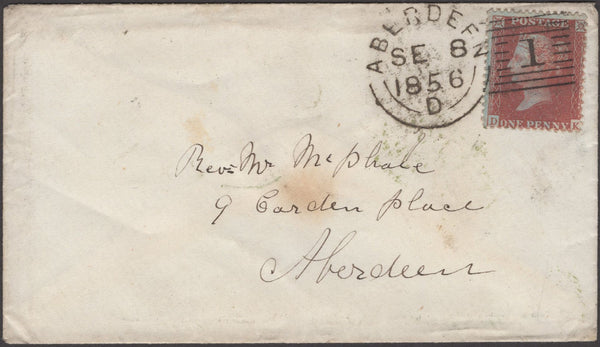 ABERDEEN
SE 8
1856
D
POSTAGE
1
D ONE PENNY K
Revd Mr McPhale
9 Carden Place
Aberdeen